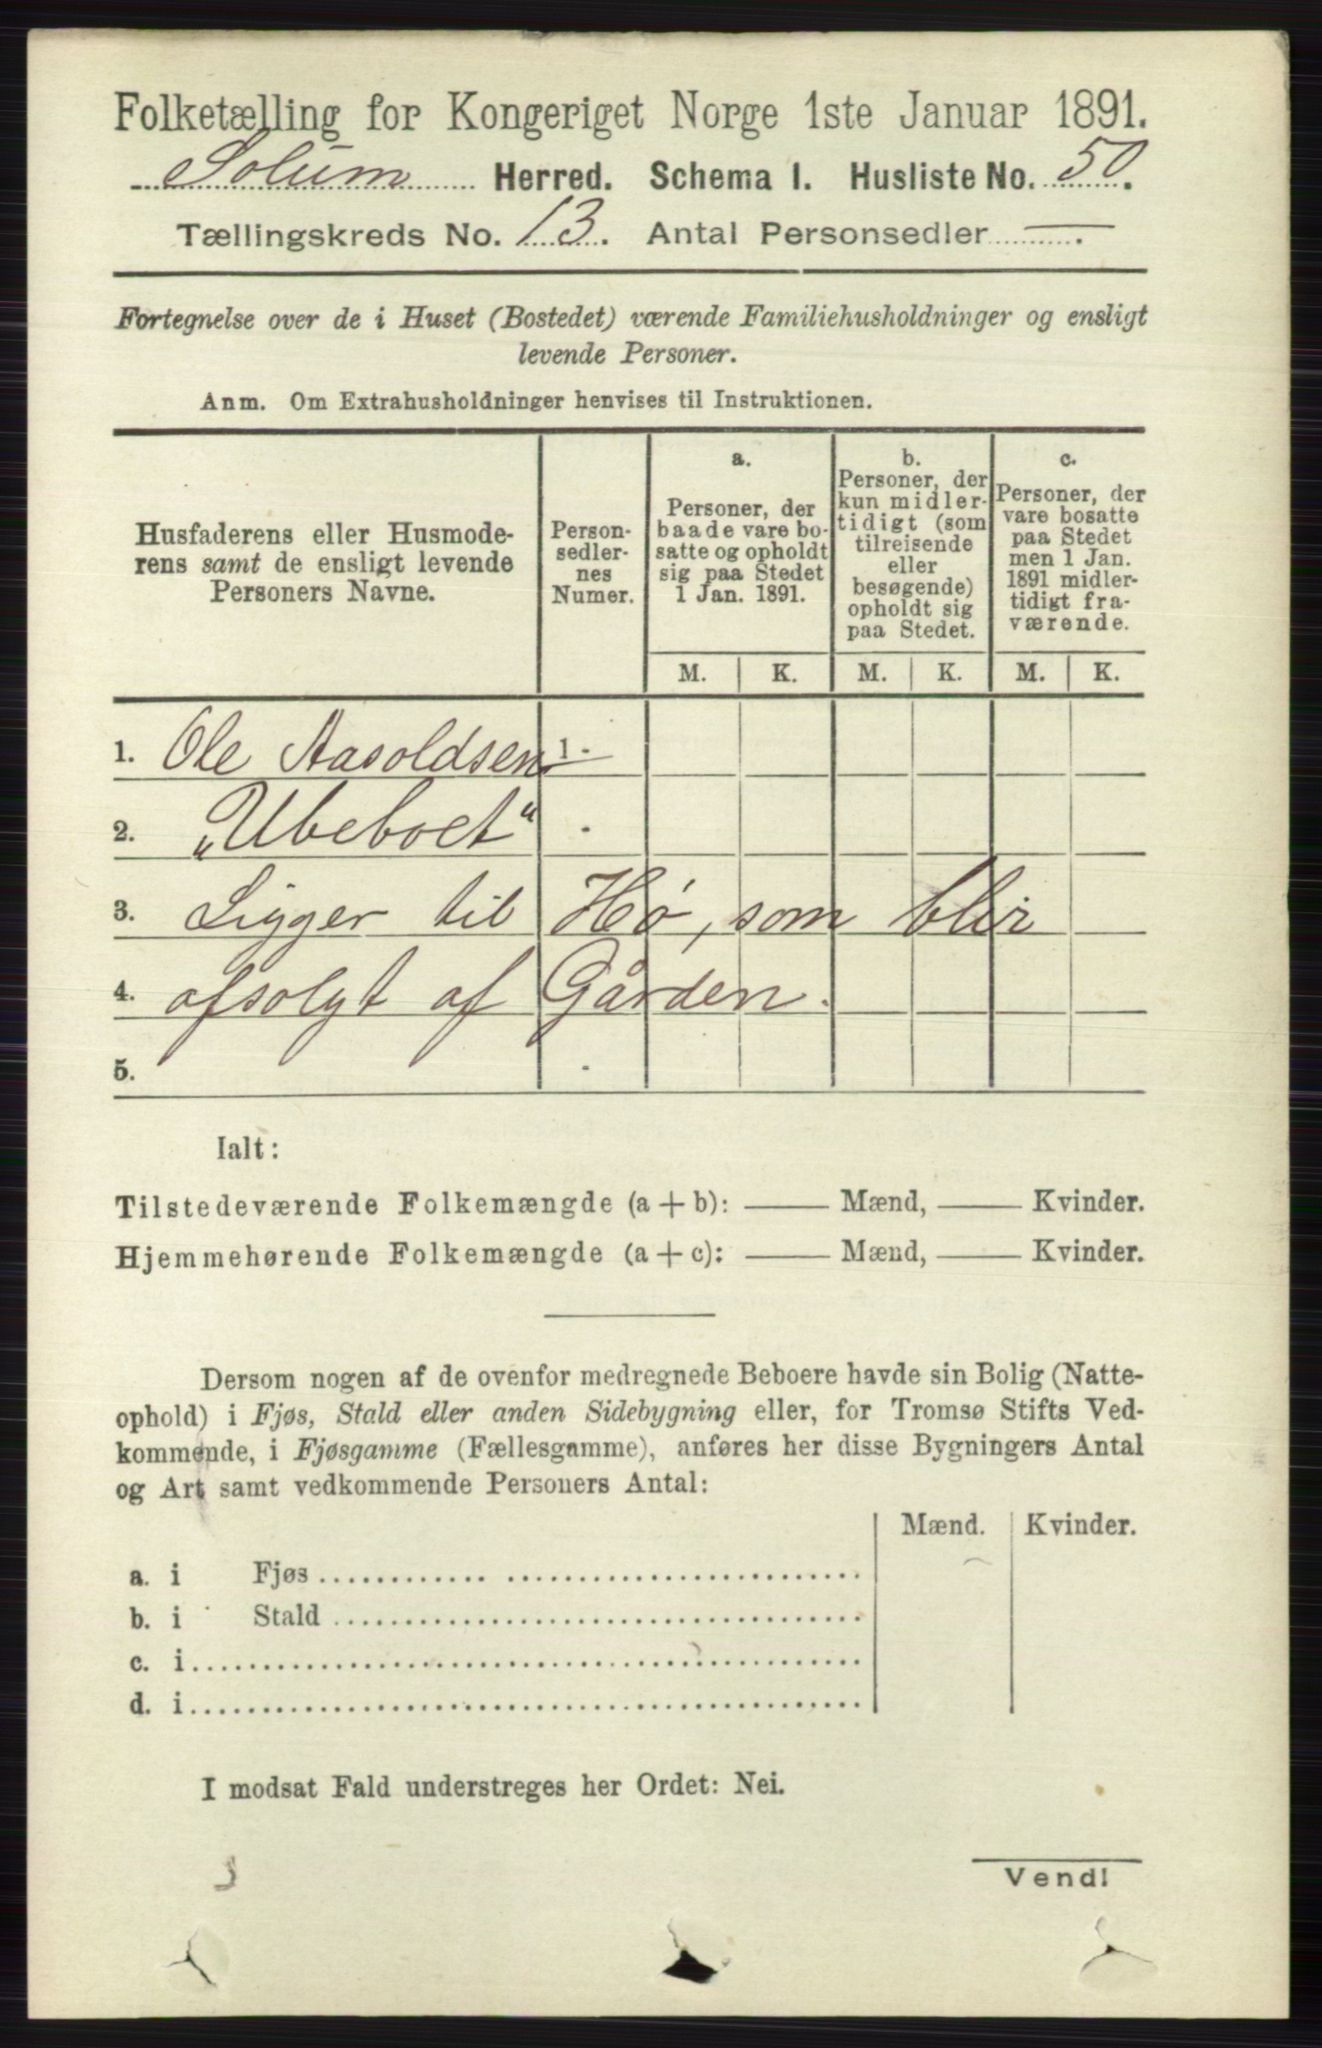 Folketælling for Kongeriget Norge 1ste Januar 1891.
Solum Herred. Schema I. Husliste No. 50.
Tællingskreds No. 13. Antal Personsedler — .
Fortegnelse over de i Huset (Bostedet) værende Familiehusholdninger og ensligt
levende Personer.
Anm. Om Extrahusholdninger henvises til Instruktionen.
Husfaderens eller Husmode-
rens samt de ensligt levende
Personers Navne.
Person-
sedler-
nes
Numer.
a.
Personer, der
baade vare bo-
satte og opholdt
sig paa Stedet
1 Jan. 1891.
b.
Personer, der
kun midler-
tidigt (som
tilreisende
eller
besøgende)
opholdt sig
paa Stedet.
c.
Personer, der
vare bosatte
paa Stedet
men 1 Jan.
1891 midler-
tidigt fra-
værende.
M. K. M. K. M. K.
1. Ole Aasoldsen 1 -
2. „Ubeboet“ -
3. Ligger til Hø, som blir
4. afsolgt af Gården.
5. -
Ialt:
Tilstedeværende Folkemængde (a + b): —— Mænd, —— Kvinder.
Hjemmehørende Folkemængde (a + c): —— Mænd, —— Kvinder.
Dersom nogen af de ovenfor medregnede Beboere havde sin Bolig (Natte-
ophold) i Fjøs, Stald eller anden Sidebygning eller, for Tromsø Stifts Ved-
kommende, i Fjøsgamme (Fællesgamme), anføres her disse Bygningers Antal
og Art samt vedkommende Personers Antal:
Mænd. Kvinder.
a. i Fjøs
b. i Stald
c. i
d. i
I modsat Fald understreges her Ordet: Nei.
Vend!